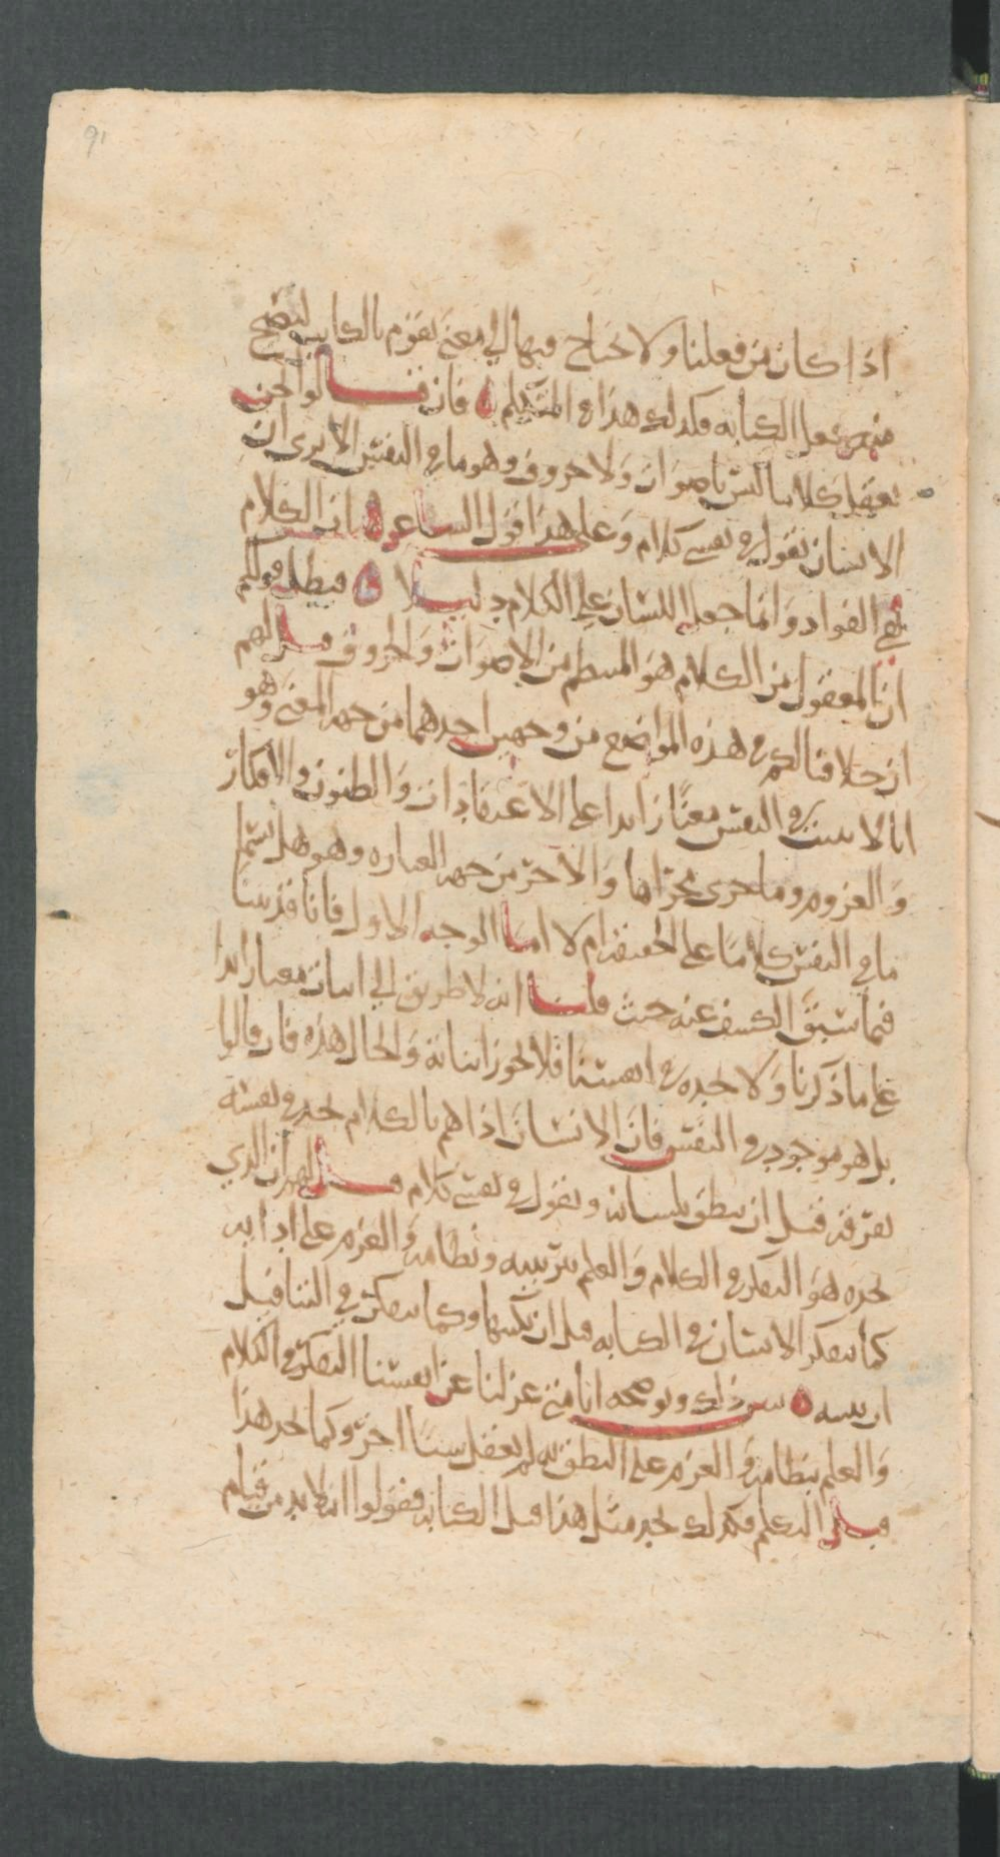 91
اذا كان من فعلنا ولا نحتاج فيها الى معنى يقوم بالكاتب ليصح
منه فعل الكتابه فكذلك هذا في المتكلم ه فان قالوا نحن
نعقل كلاما ليس باصوات ولا حروف وهو ما في النفس الا ترى ان
الانسان يقول في نفسي كلام وعلى هذا قول الشاعر ه ان الكلام
لفي الفواد وانما جعل اللسان على الكلام دليلا ه فبطل قولكم
ان المعقول من الكلام هو المنتظم من الاصوات والحروف قيل لهم
ان خلافنا لكم في هذه المواضع من وجهين احدهما من جهه المعنى وهو
انا لا نثبت في النفس معنًا زايدا على الاعتقادات والظنون والافكار
والعزوم وما جرى مجراها والاخر من جهه العباره وهو هل نسمي
ما في النفس كلاما على الحقيقه ام لا اما الوجه الاول فانا قد بينا
فيما سبق الكشف عنه حيث قلنا انه لا طريق الى اثبات معنا زايدا
على ما ذكرنا ولا نجده في انفسنا فلا يجوز اثباته والحال هذه فان قالوا
بل هو موجود في النفس فان الانسان اذا هم بالكلام يجد في نفسه
قبل ان ينطق بلسانه ويقول في نفسي كلام قيل لهم ان الذي
يجده هو التفكر في الكلام والعلم بترتيبه ونظامه والعزم على ادايه
كما يتفكر الانسان في الكتابه قبل ان يكتبها وكما يتفكر في البنا قبل
ان يبنيه ه يبين ذلك ويوضحه انا متى عزلنا عن انفسنا التفكر في الكلام
والعلم بنظامه والعزم على النطق به لم نعقل شيئا اخر وكما نجد هذا
قبل التكلم فكذلك نجد مثل هذا قبل الكتابه فقولوا انه لا بد من قيام